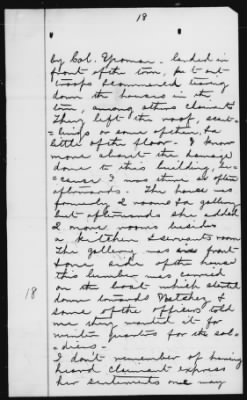 18
by Col. Yeoman. landed in
front of the town, put out
troops & commenced tearing
down the houses in the
town, among others claimants
They left the roof, scant-
lings or some of them, & a
little of the floor. I know
more about the damage
done to this building be-
cause I was there so often
afterwards. The house was
formerly 2 rooms & a gallery
but afterwards she added
2 more rooms besides
a kitchen & servants room
The gallery was in front
& one side of the house
This lumber was carried
on the boat which started
down towards Natchez &
some of the officers told
me they wanted it for
winter quarters for the sol-
diers.-
18
I don't remember of having
heard claimant express
her sentiments one way